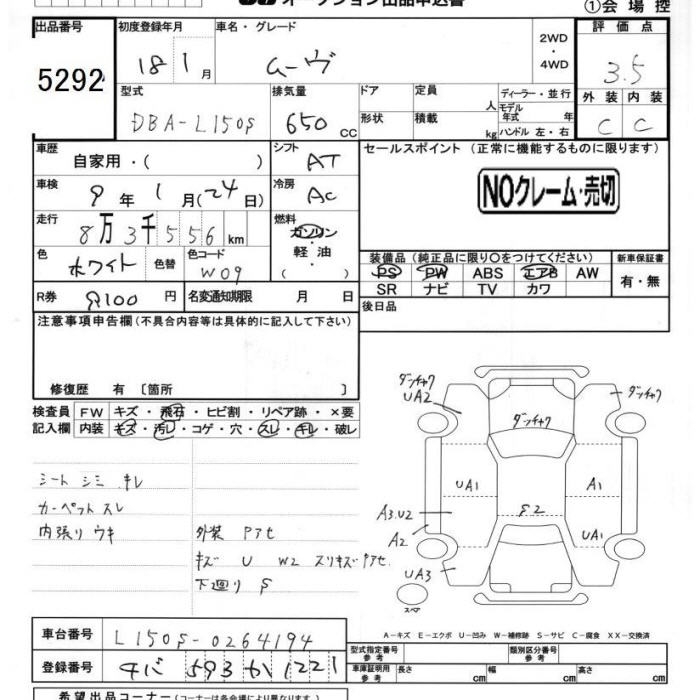 オークション出品申込書
①会場控
出品番号 初度登録年月 車名・グレード 評価点
5292 18 1月 ムーヴ 2WD・4WD 3.5
型式 排気量 ドア 定員 人 ディーラー・並行 外装 内装
DBA-L150S 650 cc 形状 積載 kg モデル年式 年 ハンドル 左・右 C C
車歴 自家用・( ) シフト AT セールスポイント (正常に機能するものに限ります)
車検 9年 1月(24日) 冷房 AC NOクレーム・売切
走行 8万3千556km 燃料 ガソリン・軽油・( )
色 ホワイト 色替 色コード W09 装備品 (純正品に限り○をつけてください) 新車保証書
PS PW ABS エアB AW 有・無
SR ナビ TV カワ
R券 8100円 名変通知期限 月 日 後日品
注意事項申告欄(不具合内容等は具体的に記入して下さい)
修復歴 有 〔箇所 〕
検査員 FW キズ・飛石・ヒビ割・リペア跡・×要
記入欄 内装 キズ・汚レ・コゲ・穴・スレ・キレ・破レ
ダンチャク UA2
ダンチャク
ダンチャク
シート シミ キレ
カーペット スレ
内張り ウキ
UA1 A1
A3.U2 S2
A2 UA1
UA3
スペア
外装 Pアセ
キズ U W2 スリキズ Pアセ
下廻り S
A－キズ E－エクボ U－凹み W－補修跡 S－サビ C－腐食 XX－交換済
車台番号 L150S-0264194 型式指定番号 参考 類別区分番号 参考
登録番号 チバ 593 か 1221 車庫証明用 参考 長さ cm 幅 cm 高さ cm
希望出品コーナー(コーナーは各会場により異なります。)